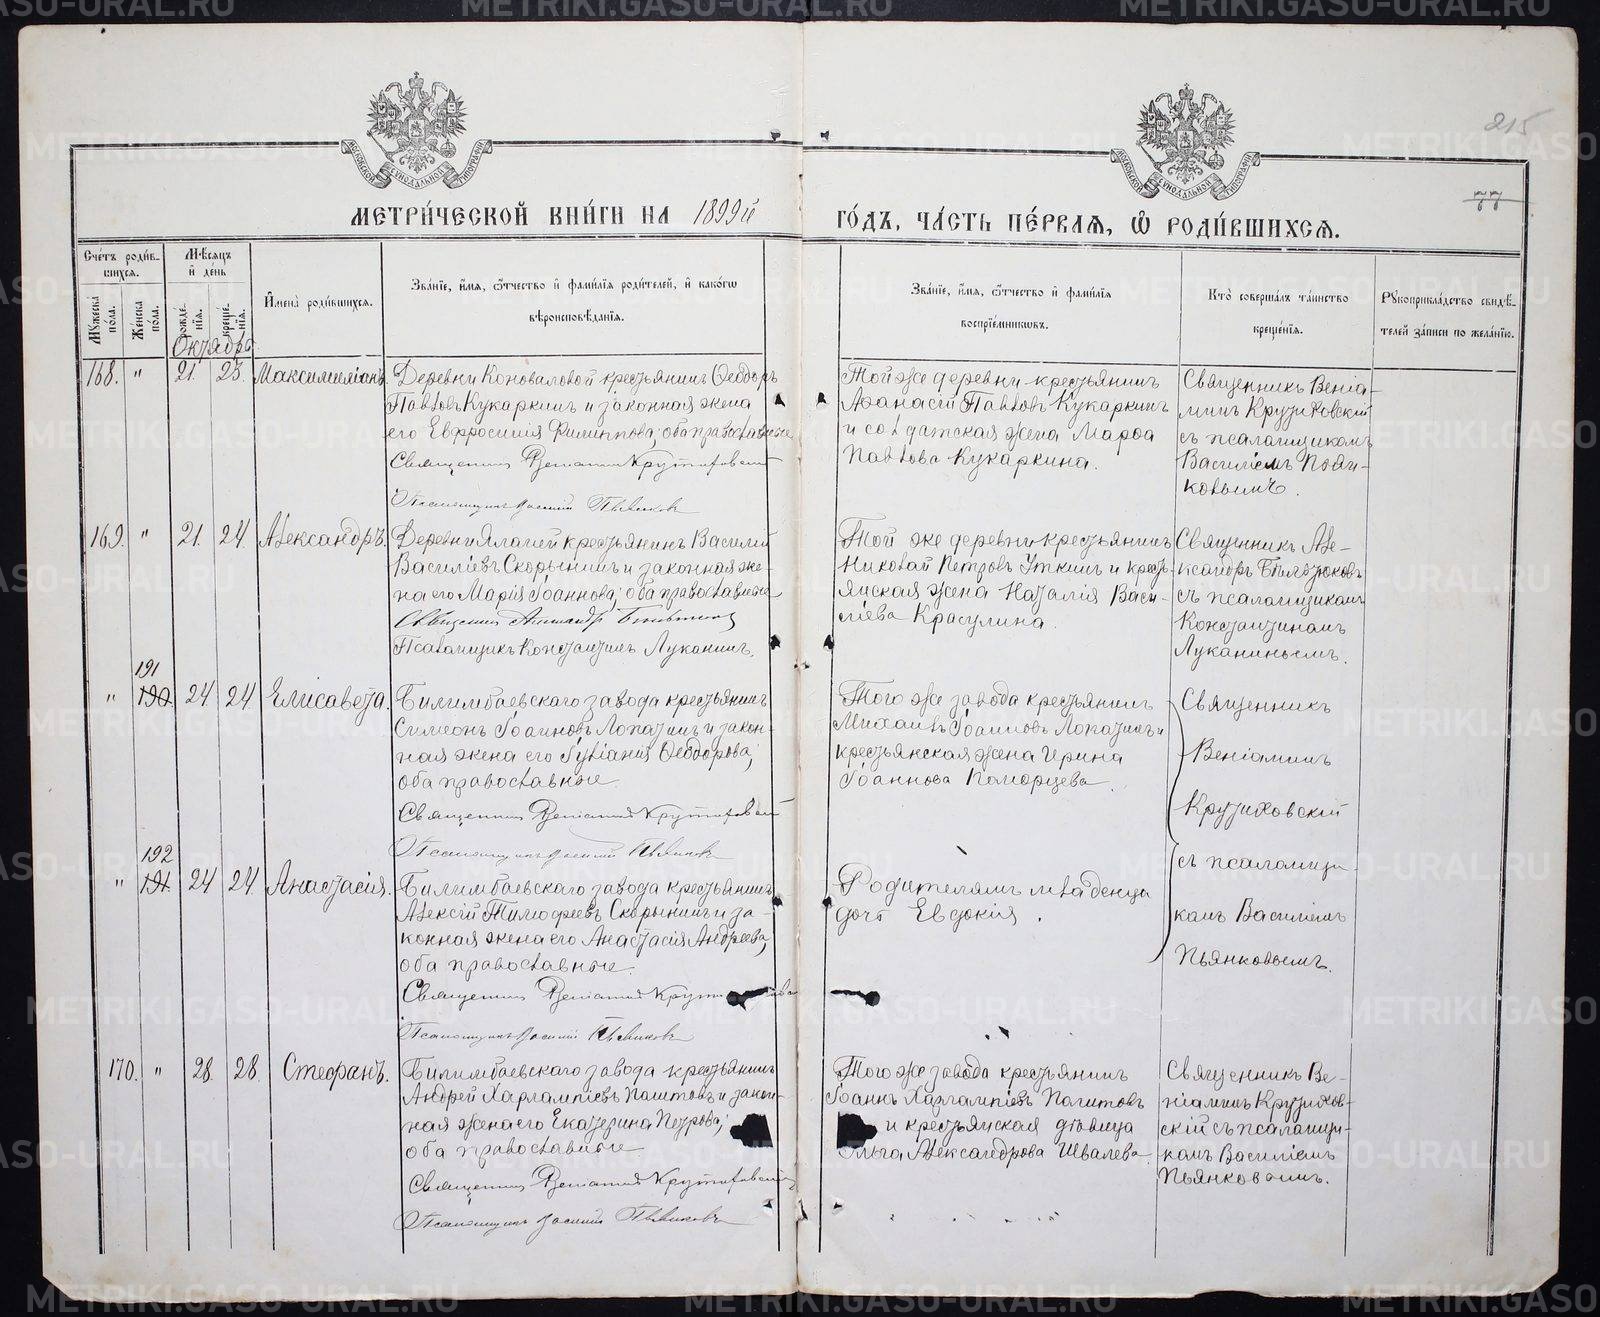 215
77
МОСКОВСКОЙ СѴНОДАЛЬНОЙ ТИПОГРАФІИ
МОСКОВСКОЙ СѴНОДАЛЬНОЙ ТИПОГРАФІИ
МЕТРИ́ЧЕСКОЙ КНИ́ГИ НА 1899й
ГО́ДЪ, ЧА́СТЬ ПЕ́РВАѦ, Ѡ РОДИ́ВШИХСѦ.
Счетъ роди́в-
шихся.
Мужеска по́ла.
Женска по́ла.
Мѣсяцъ
и де́нь
рожде́нія.
креще́нія.
Октябрь
Имена̀ роди́вшихся.
Зва́ніе, и́мя, о́тчество и фами́лія роди́телей, и како́гѡ
вѣроисповѣ́данія.
Зва́ніе, и́мя, о́тчество и фами́лія
воспріе́мниковъ.
Кто̀ соверша́лъ та́инство
креще́нія.
Рукоприкла́дство свидѣ́-
телей за́писи по жела́нію.
168. " 21. 23. Максимиліанъ.
Деревни Коноваловой крестьянинъ Ѳеодоръ
Павловъ Кукаркинъ и законная жена
его Евфросинія Филиппова; оба православные
Священникъ Веніаминъ Крутиховскій
Псаломщикъ Василій Пьянковъ
Той же деревни крестьянинъ
Аѳанасій Павловъ Кукаркинъ
и солдатская жена Марѳа
Павлова Кукаркина.
Священникъ Веніа-
минъ Крутиховскій
съ псаломщикомъ
Василіемъ Пьян-
ковымъ.
169. " 21. 24. Александръ.
Василій
Василіевъ Скорынинъ и законная же-
на его Марія Іоаннова; оба православные
Священникъ Александръ
Псаломщикъ Константинъ Луканинъ.
Той же деревни крестьянинъ
Николай Петровъ Уткинъ и кресть-
янская жена Наталія Васи-
ліева Красулина.
Священникъ Але-
ксандръ
съ псаломщикомъ
Константиномъ
Луканинымъ.
191
" 190. 24 24 Елисавета.
Билимбаевскаго завода крестьянинъ
Симеонъ Іоанновъ Лопатинъ и закон-
ная жена его Іуліанія Ѳеодорова;
оба православные.
Священникъ Веніаминъ Крутиховскій
Псаломщикъ Василій Пьянковъ
Того же завода крестьянинъ
Михаилъ Іоанновъ Лопатинъ и
крестьянская жена Ирина
Іоаннова Поморцева.
Священникъ
Веніаминъ
Крутиховскій
съ псаломщи-
комъ Василіемъ
Пьянковымъ.
192
" 191. 24 24. Анастасія.
Билимбаевскаго завода крестьянинъ
Алексій Тимоѳеевъ Скорынинъ и за-
конная жена его Анастасія Андреева;
оба православные.
Священникъ Веніаминъ
Псаломщикъ Василій Пьянковъ
Родителямъ младенца
дочь Евдокія.
170. " 28. 28. Стефанъ.
Билимбаевскаго завода крестьянинъ
Андрей Харлампіевъ и закон-
ная жена его Екатерина Петрова;
оба православные.
Священникъ Веніаминъ Крутиховскій
Псаломщикъ Василій Пьянковъ
Того же завода крестьянинъ
Іоаннъ Харлампіевъ
и крестьянская дѣвица
Ольга Александрова Швалева
Священникъ Ве-
ніаминъ Крутихов-
скій съ псаломщи-
комъ Василіемъ
Пьянковымъ.
METRIKI.GASO-URAL.RU